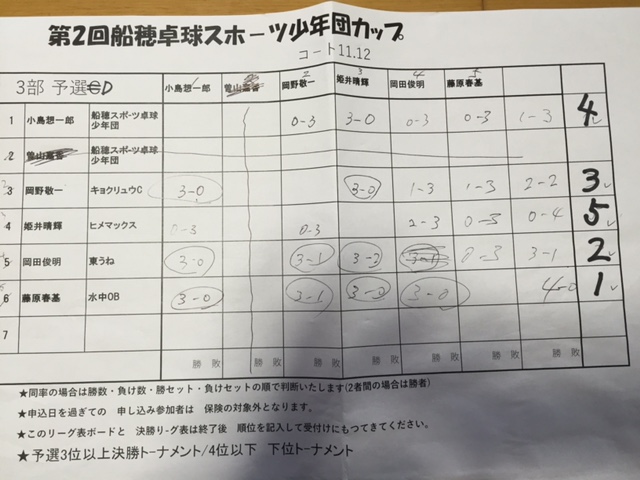 第2回船穂卓球スポーツ少年団カップ
コート11.12
3部 予選 D 小島惣一郎 岡野敬一 姫井晴輝 岡田俊明 藤原春基
1 2 3 4 5
1 小島惣一郎 船穂スポーツ卓球少年団 0-3 3-0 0-3 0-3 1-3 4
2 船穂スポーツ卓球少年団
3 岡野敬一 キョクリュウC 3-0 3-0 1-3 1-3 2-2 3
4 姫井晴輝 ヒメマックス 0-3 0-3 2-3 0-3 0-4 5
5 岡田俊明 東うね 3-0 3-1 0-3 3-1 2
6 藤原春基 水中OB 3-0 3-1 3-0 3-0 4-0 1
7
勝 敗 勝 敗 勝 敗 勝 敗 勝 敗 勝 敗 勝 敗
★同率の場合は勝数・負け数・勝セット・負けセットの順で判断いたします(2者間の場合は勝者)
★申込日を過ぎての 申し込み参加者は 保険の対象外となります。
★このリーグ表ボードと 決勝リ-グ表は終了後 順位を記入して受付けにもってきてください。
★予選3位以上決勝トーナメント/4位以下 下位トーナメント